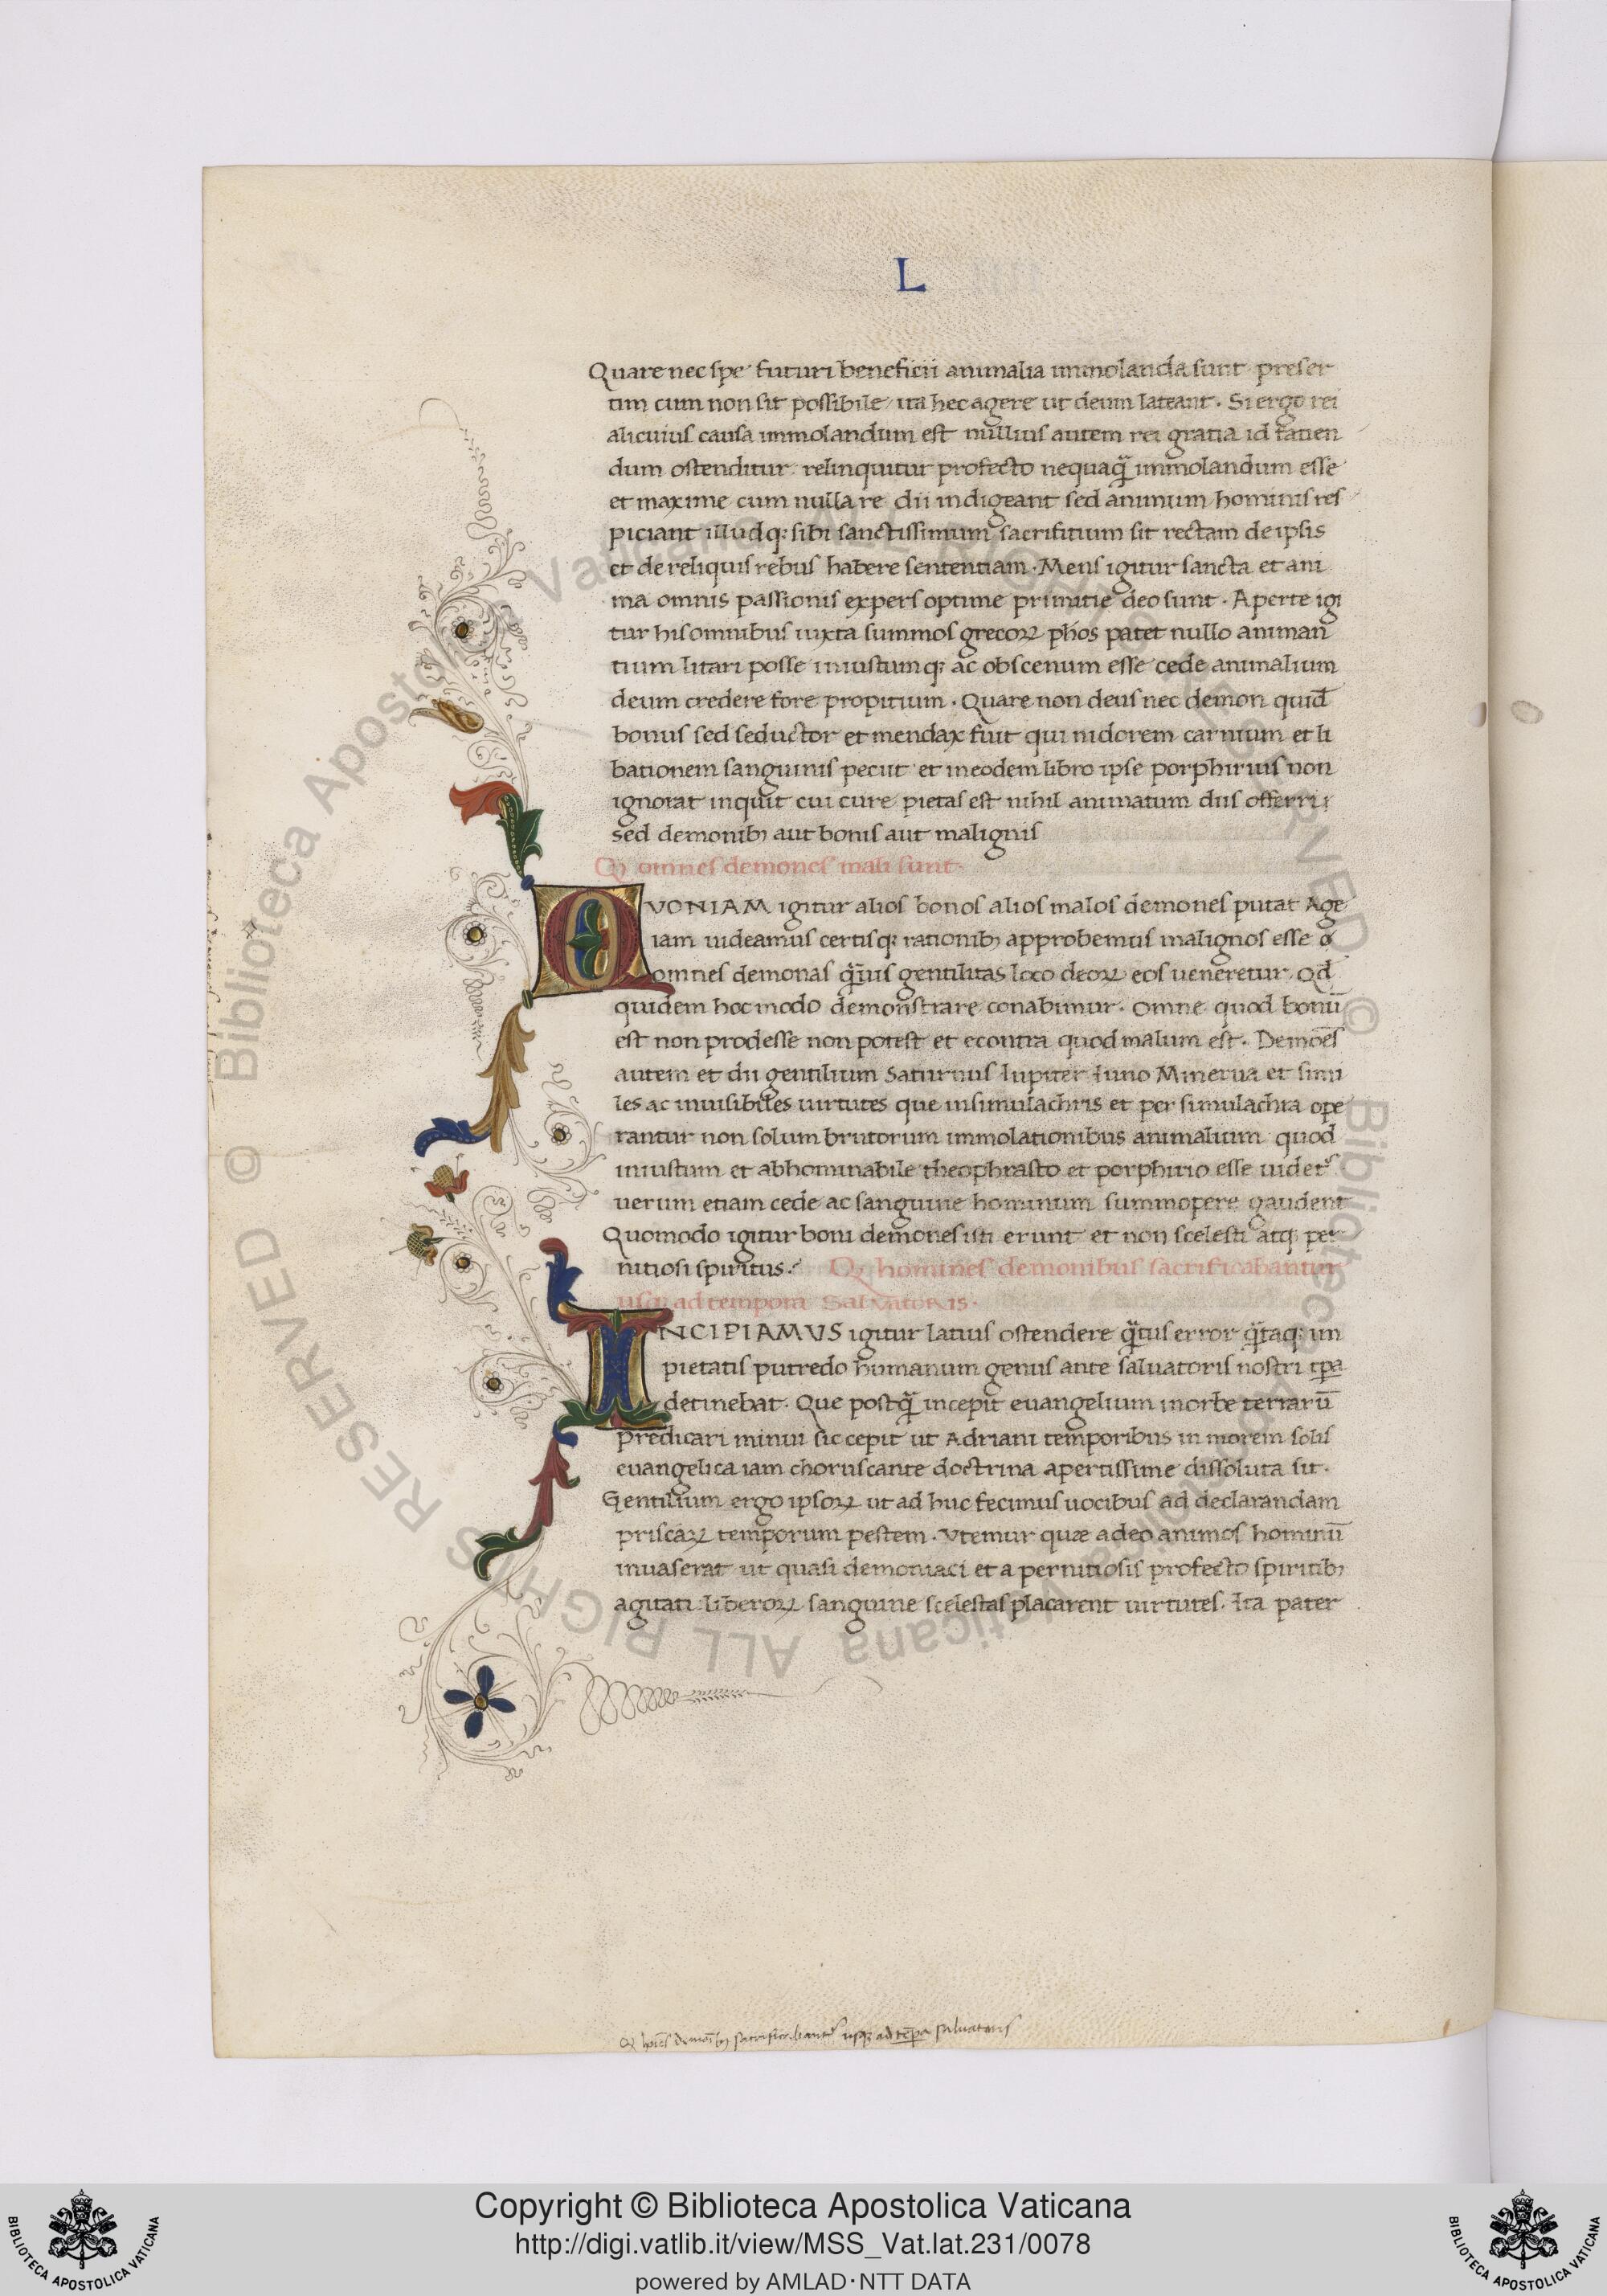 L
Quare nec spe futuri beneficii animalia immolanda sunt preser
tim cum non sit possibile ita hec agere ut deum lateant. Si ergo rei
alicuius causa immolandum est nullius autem rei gratia id fatien
dum ostenditur relinquitur profecto nequaq̃ immolandum esse
et maxime cum nulla re dii indigeant sed animum hominis res
piciant illudq; sibi sanctissimum sacrifitium sit rectam de ipsis
et de reliquis rebus habere sententiam. Mens igitur sancta et ani
ma omnis passionis expers optime primitie deo sunt. Aperte igi
tur his omnibus iuxta summos grecoꝝ ph̃os patet nullo animan
tium litari posse iniustumq; ac obscenum esse cede animalium
deum credere fore propitium. Quare non deus nec demon quid̃
bonus sed seductor et mendax fuit qui nidorem carnium et li
bationem sanguinis petiit et in eodem libro ipse porphirius non
ignorat inquit cui cure pietas est nihil animatum diis offerri
sed demonibꝫ aut bonis aut malignis
Q omnes demones mali sunt.
QVONIAM igitur alios bonos alios malos demones putat Age
iam uideamus certisq; rationibꝫ approbemus malignos esse
omnes demonas q̃uis gentilitas loco deoꝝ eos ueneretur. Qd̃
quidem hoc modo demonstrare conabimur. Omne quod bonũ
est non prodesse non potest et econtra quod malum est. Demoẽs
autem et dii gentilium Saturnus Iupiter Iuno Minerua et simi
les ac inuisibiles uirtutes que in simulachris et per simulachra ope
rantur non solum brutorum immolationibus animalium quod
iniustum et abhominabile theophrasto et porphirio esse uidet᷑
uerum etiam cede ac sanguine hominum summopere gaudent
Quomodo igitur boni demones isti erunt et non scelesti atq; per
nitiosi spiritus. Q homines demonibus sacrificabantur
usq; ad tempora Salvatoris.
INCIPIAMVS igitur latius ostendere q̃tus error q̃taq; im
pietatis putredo humanum genus ante saluatoris nostri tp̃a
detinebat. Que postq̃ incepit euangelium in orbe terrarũ
predicari minui sic cepit ut Adriani temporibus in morem solis
euangelica iam choruscante doctrina apertissime dissoluta sit.
Gentilium ergo ipsoꝝ ut ad huc fecimus uocibus ad declarandam
priscaꝝ temporum pestem. Vtemur quæ adeo animos hominũ
inuaserat ut quasi demoniaci et a pernitiosis profecto spiritibꝫ
agitati liberoꝝ sanguine scelestas placarent uirtutes. Ita pater
Q hoĩes demoĩbꝫ sacrificabant᷑ usq; ad tẽpa saluatoris
© Biblioteca Apostolica Vaticana ALL RIGHTS RESERVED
© Biblioteca Apostolica Vaticana ALL RIGHTS RESERVED
Copyright © Biblioteca Apostolica Vaticana
http://digi.vatlib.it/view/MSS_Vat.lat.231/0078
powered by AMLAD·NTT DATA
BIBLIOTECA APOSTOLICA VATICANA
BIBLIOTECA APOSTOLICA VATICANA